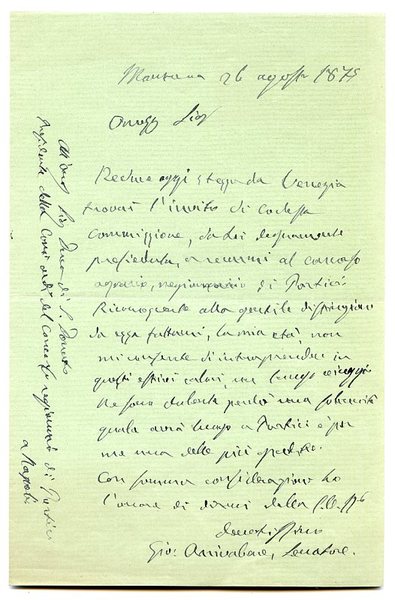 Mantova 26 agosto 1875
Onor. Sig.
Reduce oggi stesso da Venezia
trovai l'invito di codesta
Commissione, da Lei degnamente
presieduta, a recarmi al concorso
agrario, regionario di Portici.
Riconoscente alla gentile distinzione
da essa fattami, la mia età, non
mi consente di intraprendere in
questi estivi calori, un lungo viaggio.
Ne sono dolente perchè una solennità
quale avrà luogo a Portici è per
me una delle più
Con somma considerazione ho
l'onore di dirmi della S.V.
devotissimo
Gio: Arrivabene, Senatore.
All'onor. Sig. Duca di S. Donato
Presidente della Com. ord. del Concorso regionario di Portici
a Napoli